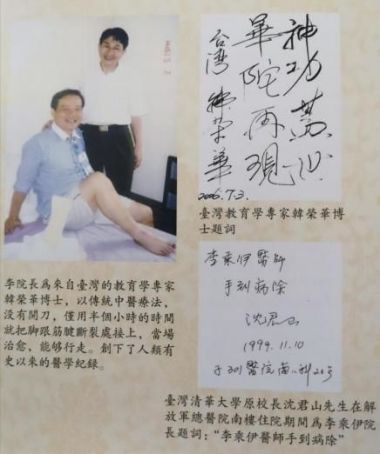 李院長爲來自臺灣的教育學專家
韓榮華博士，以傳統中醫療法，
没有開刀，僅用半個小時的時間
就把脚跟筋腱斷裂處接上，當場
治愈，能够行走。創下了人類有
史以來的醫學紀録。
神功蓋世
華陀再現
台灣 韓榮華
2006.7.3.
臺灣教育學專家韓榮華博
士題詞
李乘伊醫師
手到病除
沈君山
1999.11.10
臺灣清華大學原校長沈君山先生在解
放軍總醫院南樓住院期間爲李乘伊院
長題詞：“李乘伊醫師手到病除”